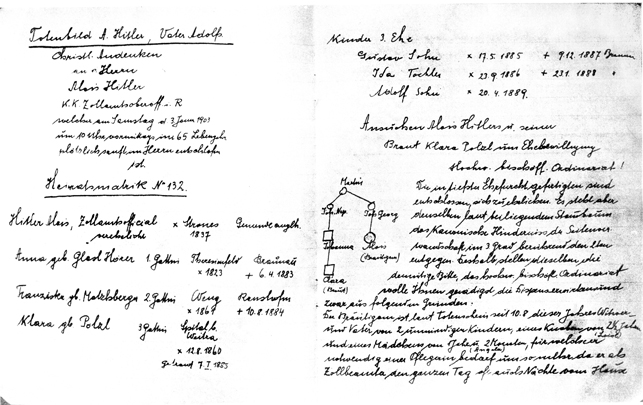 Totenbild A. Hitler, Vater Adolfs
Christl. Andenken
an Herrn
Alois Hitler
K.K. Zollamtsoberoff. i. R
welcher am Samstag d 3. Jänn 1903
um 10 Uhr vormittags im 65 Lebensjh
plötzlich sanft im Herrn entschlafen
ist.
Heiratsmatrik No 132.
Hitler Alois, Zollamtsofficial x Strones
1837
Anna geb. Glasl Hörer 1 Gattin Theresienfeld Braunau
x 1823 + 6.4.1883
Franziska gb. Matzlsberger 2 Gattin Weng Ranshofen
x 1861 + 10.8.1884
Klara gb Pölzl 3 Gattin Spital b.
Weitra
x 12.8.1860
Getraut 7.I.1885
Kinder 3. Ehe
Gustav Sohn x 17.5.1885 + 9.12.1887 Braunau
Ida Tochter x 23.9.1886 + 2.1.1888 "
Adolf Sohn x 20.4.1889.
Ansuchen Alois Hitlers u. seiner
Braut Klara Pölzl um Ehebewilligung
Hochw. bischöfl. Ordinariat!
Martin
Georg
Johanna
Alois
(Bräutigam)
Klara
(Braut)
Die in tiefster Ehrfurcht gefertigten sind
entschlossen, sich zu ehelichen. Es steht aber
denselben laut beiliegendem Stammbaum
das kanonische Hindernis der Seitenver
wandschaft im 3 Grad berührend den 2ten
entgegen. Deshalb stellen dieselben die
demütige Bitte, das hochw. bischöfl. Ordinariat
wolle Ihnen gnädigst die Dispens erwirken und
zwar aus folgenden Gründen:
Der Bräutigam ist laut Totenschein seit 10.8. dieses Jahres Witwer
und Vater von 2 unmündigen Kindern, eines Knaben von 2½ Jahren
und eines Mädchens von 1 Jahr u. 2 Monaten, für welche er
(Angela)
notwendig einer Pflegerin bedarf, um so mehr, da er als
Zollbeamter den ganzen Tag oft auch Nächte vom Hause